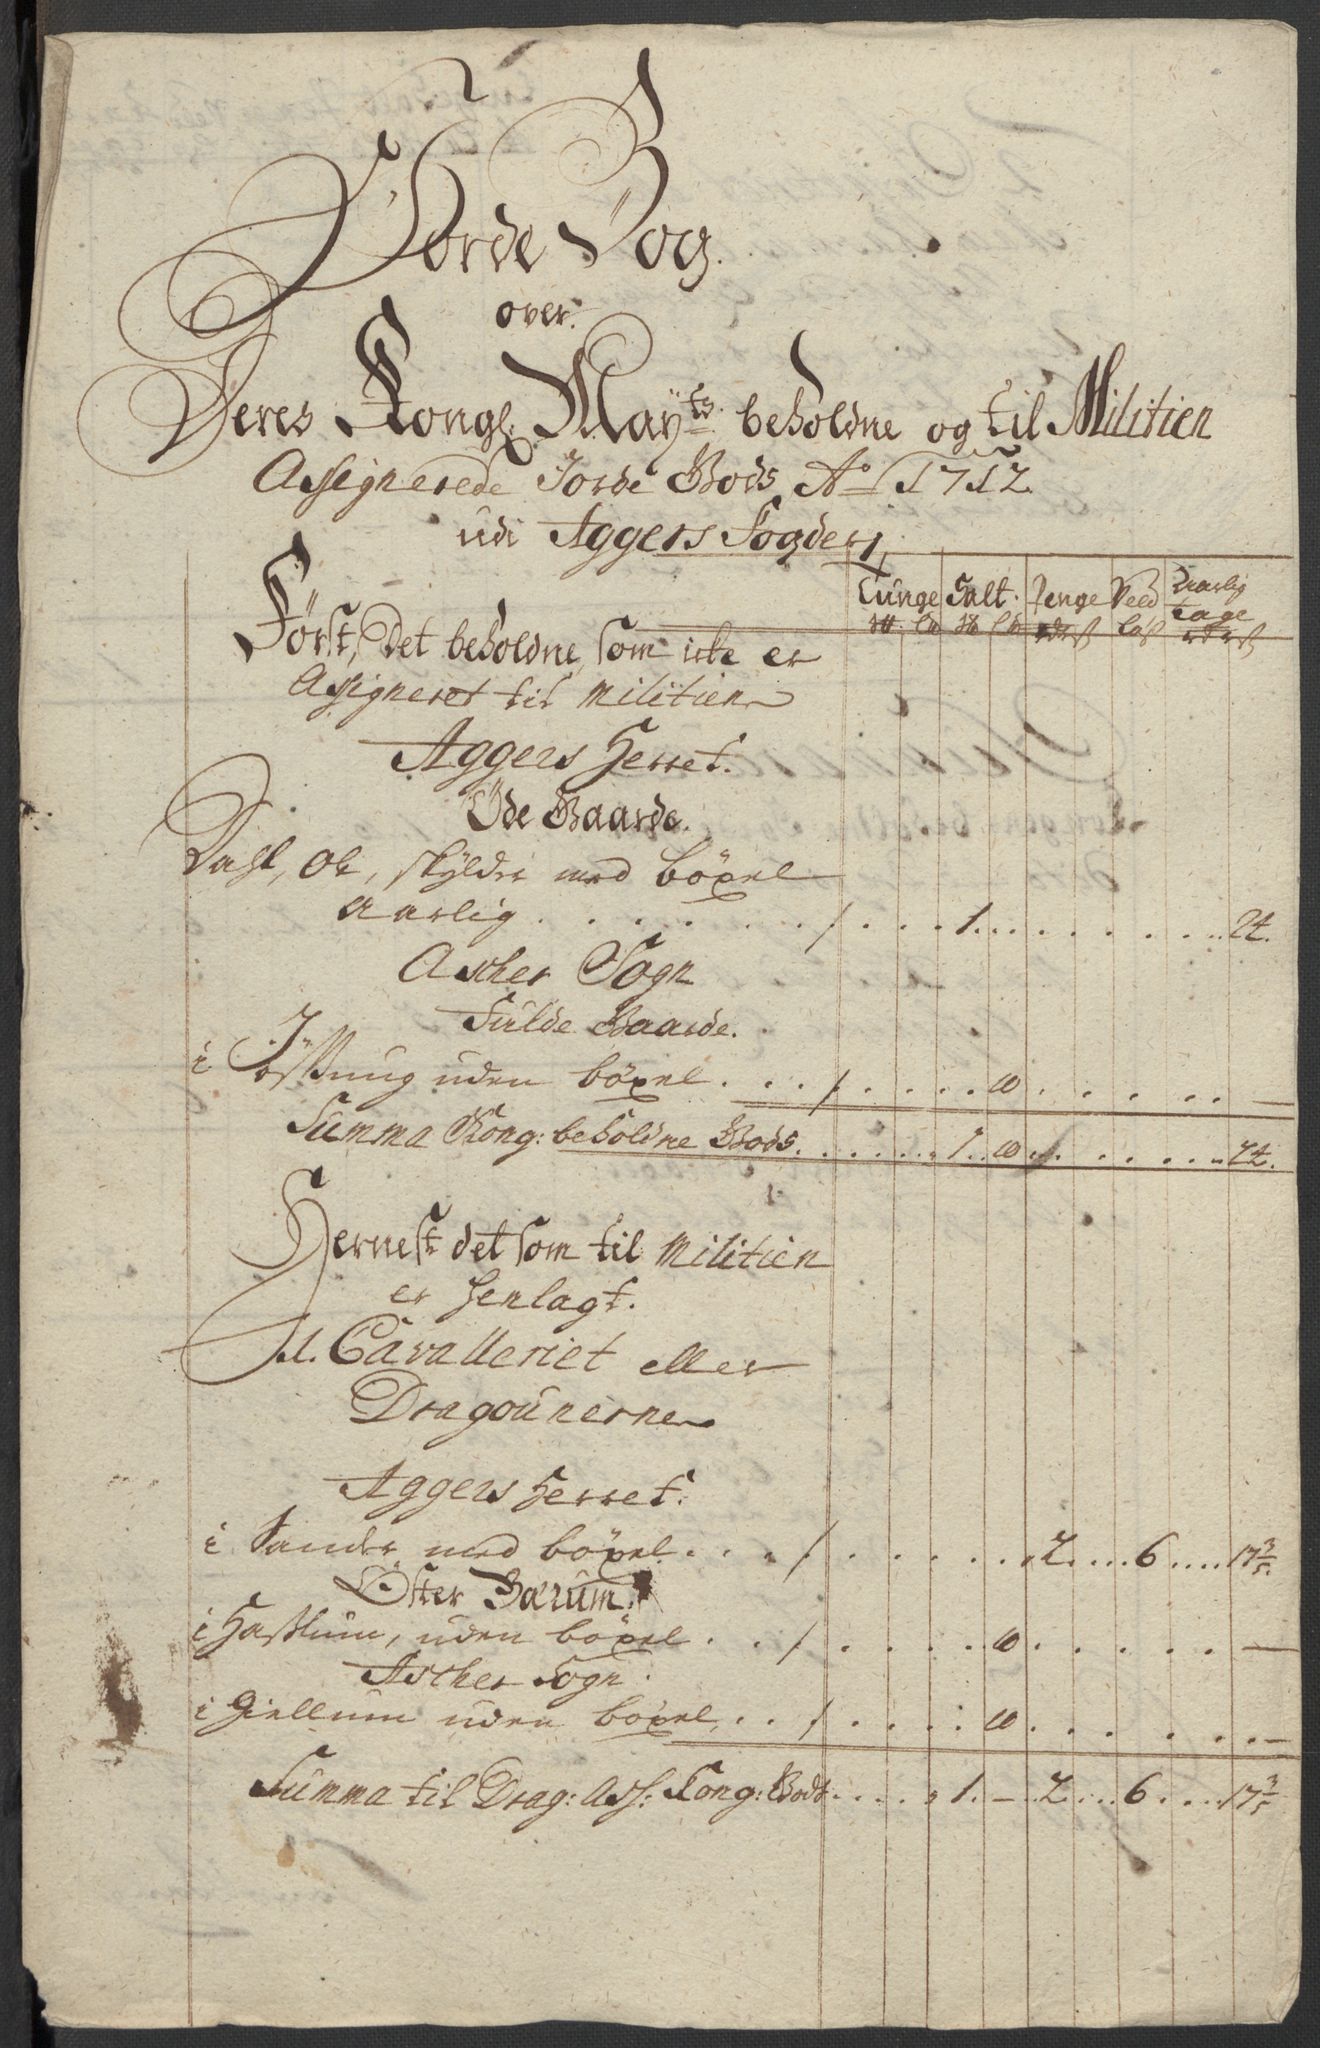 Jorde Bog
over
Deres Kongl: Mayts beholdne og til Militien
Assignerede Jorde Gods Ao 1712
udi Aggers Fogderj
Tunge Salt Penge Veed Aarlig
tage
Först, Det beholdne som icke er
Assigneret til Militien
Aggers Herret.
Öde Gaarde.
Dahl, Ob, skylder med böxel
Aarlig . . . 1 . . . 1 . . . 24.
Ascher Sogn
Fulde Gaarde.
i uden böxel . . . 1 . . . ½ . . . —
Summa Kong: beholdne Gods . . . 1 . ½ . . . 24.
Hernest det som til Militien
er henlagt.
Til Cavalleriet eller
Dragounerne
Aggers Herret.
i Sander med böxel . . . 1 . . . 2 . . . 6 . . . 17 3/5.
Öster Bærum.
i Haslum, uden böxel . . . 1 . . . ½ . . . —
Ascher Sogn.
i Giellum uden böxel . . . 1 . . . ½ . . . —
Summa til Drag: Ass: Kong: Gods . . . 1. — 2 . . . 6 . . . 17 3/5